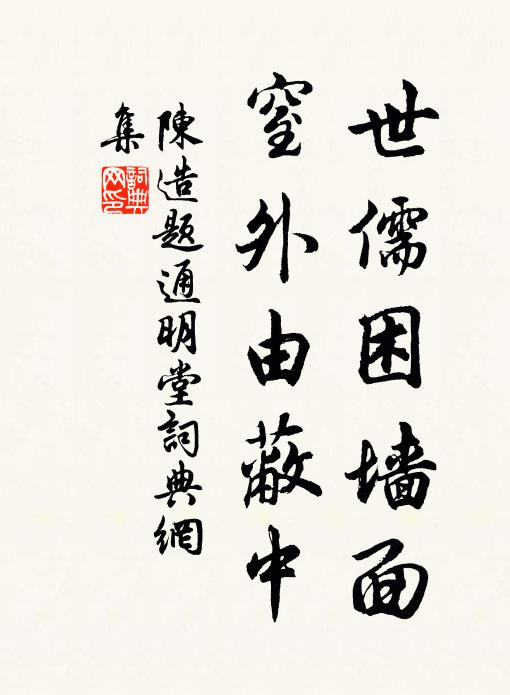 世儒困墙面
窒外由蔽中
陳造題通明堂詞典網
集
詞典
网印